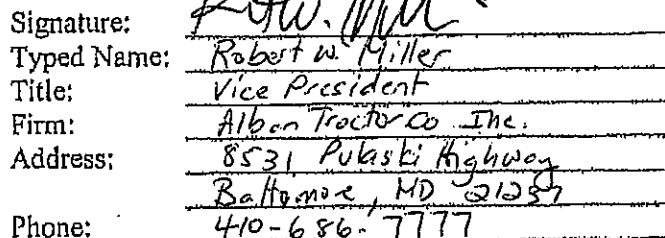 Signature:
Typed Name: Robert W. Miller
Title: Vice President
Firm: Alban Tractor Co Inc.
Address: 8531 Pulaski Highway
Baltimore, MD 21237
Phone: 410-686-7777